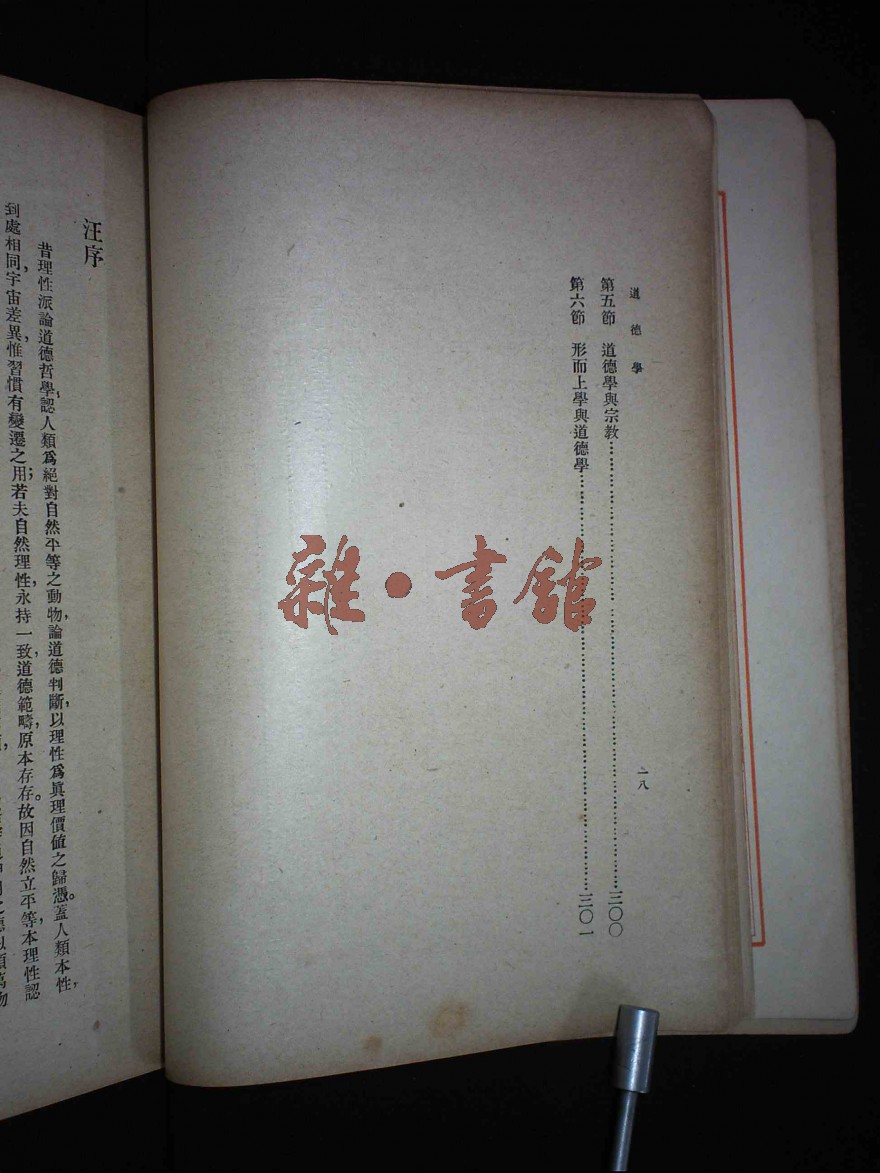 道德學
一八
第五節　道德學與宗教……三〇〇
第六節　形而上學與道德學……三〇一
雜・書館
汪序
昔理性派論道德哲學，認人類爲絕對自然平等之動物，論道德判斷，以理性爲眞理價値之歸憑。蓋人類本性，
到處相同，宇宙差異，惟習慣有變遷之用；若夫自然理性，永持一致，道德範疇，原本存存。故因自然立平等，本理性認